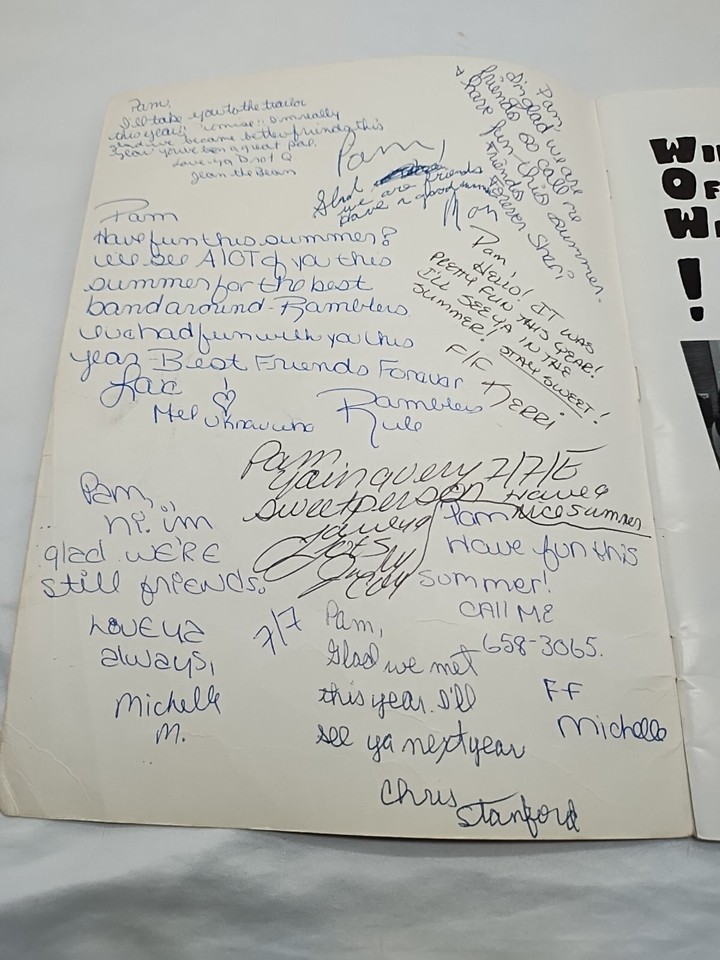 Pam,
I'll take you to the trailor
this year!! I'm really
glad we became better friends this
year. You've been a great pal.
Love ya
Jean the Bean
Pam,
Glad
we are friends
Have a good summer
Pam
I'm glad we are
friends so call me
& have fun this summer.
Friends
Forever Sheri
Pam
Have fun this summer?
we'll see A lOT of ya this
summer for the best
band around - Ramblers
we had fun with ya this
year Best Friends Forever
Mel
Ramblers
Rule
Pam,
Hello! IT WAS
PRETTY FUN THIS YEAR!
I'LL SEE YA IN THE
SUMMER! STAY SWEET!
F/F KERRI
Pam
your a very
sweet person
7/7/E
Have a
nice summer
Love ya
Lots
Pam,
Hi. i'm
glad WE'RE
still friends.
Love ya
always,
Michelle
M.
7/7
Pam
Have fun this
summer!
CAll ME
658-3065.
FF
Michelle
Pam,
Glad we met
this year. I'll
see ya next year
Chris Stanford
W
O
W
!